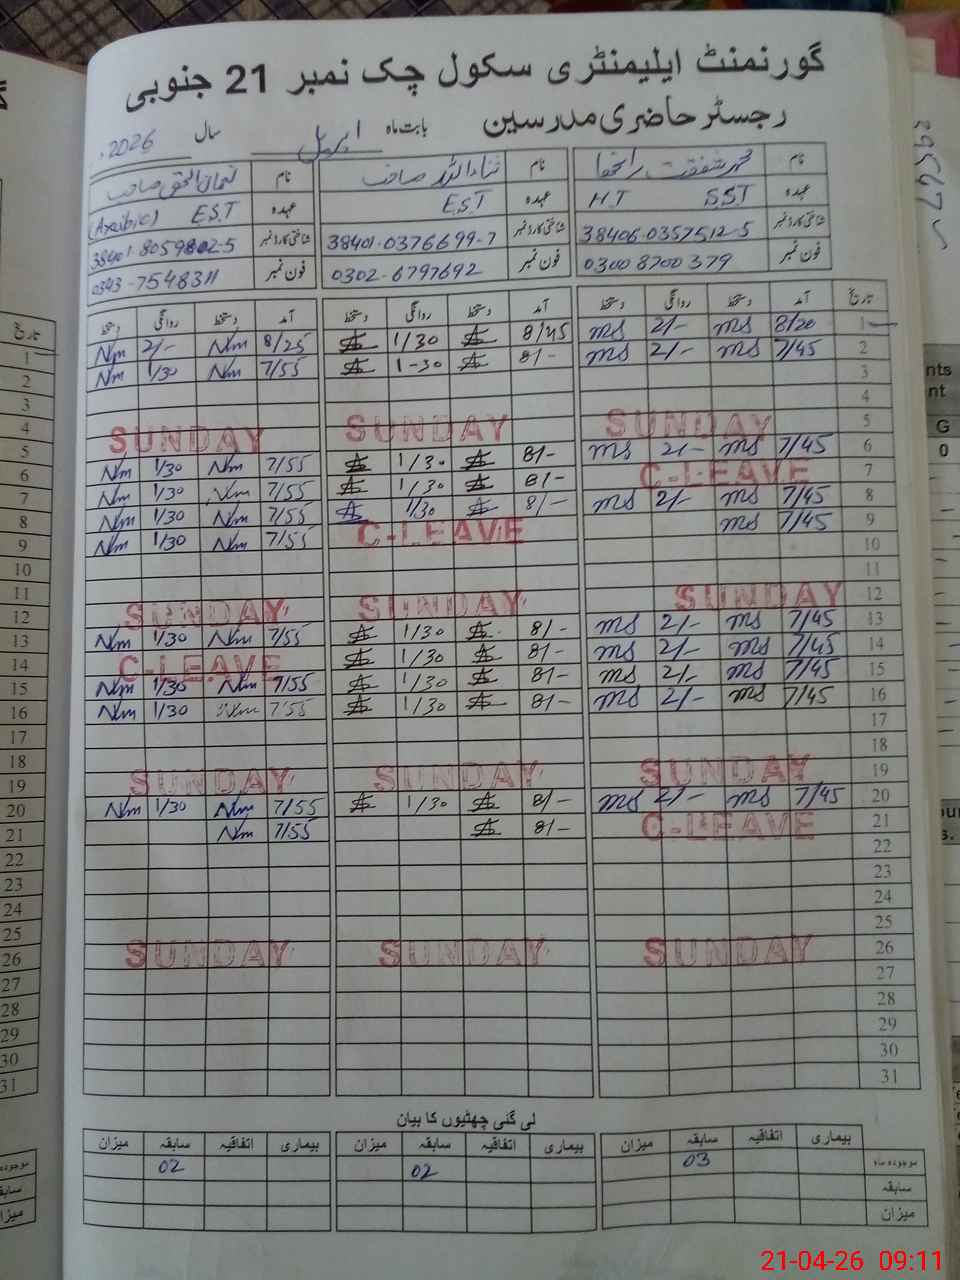 گورنمنٹ ایلیمنٹری سکول چک نمبر 21 جنوبی
رجسٹر حاضری مدرسین بابت ماہ اپریل سال 2026ء
نام محمد شفقت رانجھا نام ثناء اللہ صاحب نام صاحب
عہدہ SST HT عہدہ EST عہدہ EST (Arabic)
شناختی کارڈ نمبر 38406-0357512-5 شناختی کارڈ نمبر 38401-0376699-7 شناختی کارڈ نمبر 38401-8059802-5
فون نمبر 03008700379 فون نمبر 0302-6797692 فون نمبر 0343-7548311
تاریخ آمد دستخط روانگی دستخط آمد دستخط روانگی دستخط آمد دستخط روانگی دستخط
1 8/20 ms 2/- ms 8/45 1/30 8/25 Nm 2/- Nm
2 7/45 ms 2/- ms 8/- 1-30 7/55 Nm 1/30 Nm
3
4
5 SUNDAY SUNDAY SUNDAY
6 7/45 ms 2/- ms 8/- 1/30 7/55 Nm 1/30 Nm
7 C-LEAVE 8/- 1/30 7/55 Nm 1/30 Nm
8 7/45 ms 2/- ms 8/- 1/30 7/55 Nm 1/30 Nm
9 7/45 ms C-LEAVE 7/55 Nm 1/30 Nm
10
11
12 SUNDAY SUNDAY SUNDAY
13 7/45 ms 2/- ms 8/- 1/30 7/55 Nm 1/30 Nm
14 7/45 ms 2/- ms 8/- 1/30 C-LEAVE
15 7/45 ms 2/- ms 8/- 1/30 7/55 Nm 1/30 Nm
16 7/45 ms 2/- ms 8/- 1/30 7/55 Nm 1/30 Nm
17
18
19 SUNDAY SUNDAY SUNDAY
20 7/45 ms 2/- ms 8/- 1/30 7/55 Nm 1/30 Nm
21 C-LEAVE 8/- 7/55 Nm
22
23
24
25
26 SUNDAY SUNDAY SUNDAY
27
28
29
30
31
لی گئی چھٹیوں کا بیان
بیماری اتفاقیہ سابقہ میزان بیماری اتفاقیہ سابقہ میزان بیماری اتفاقیہ سابقہ میزان
موجودہ ماہ 03 02 02
سابقہ
میزان
21-04-26 09:11